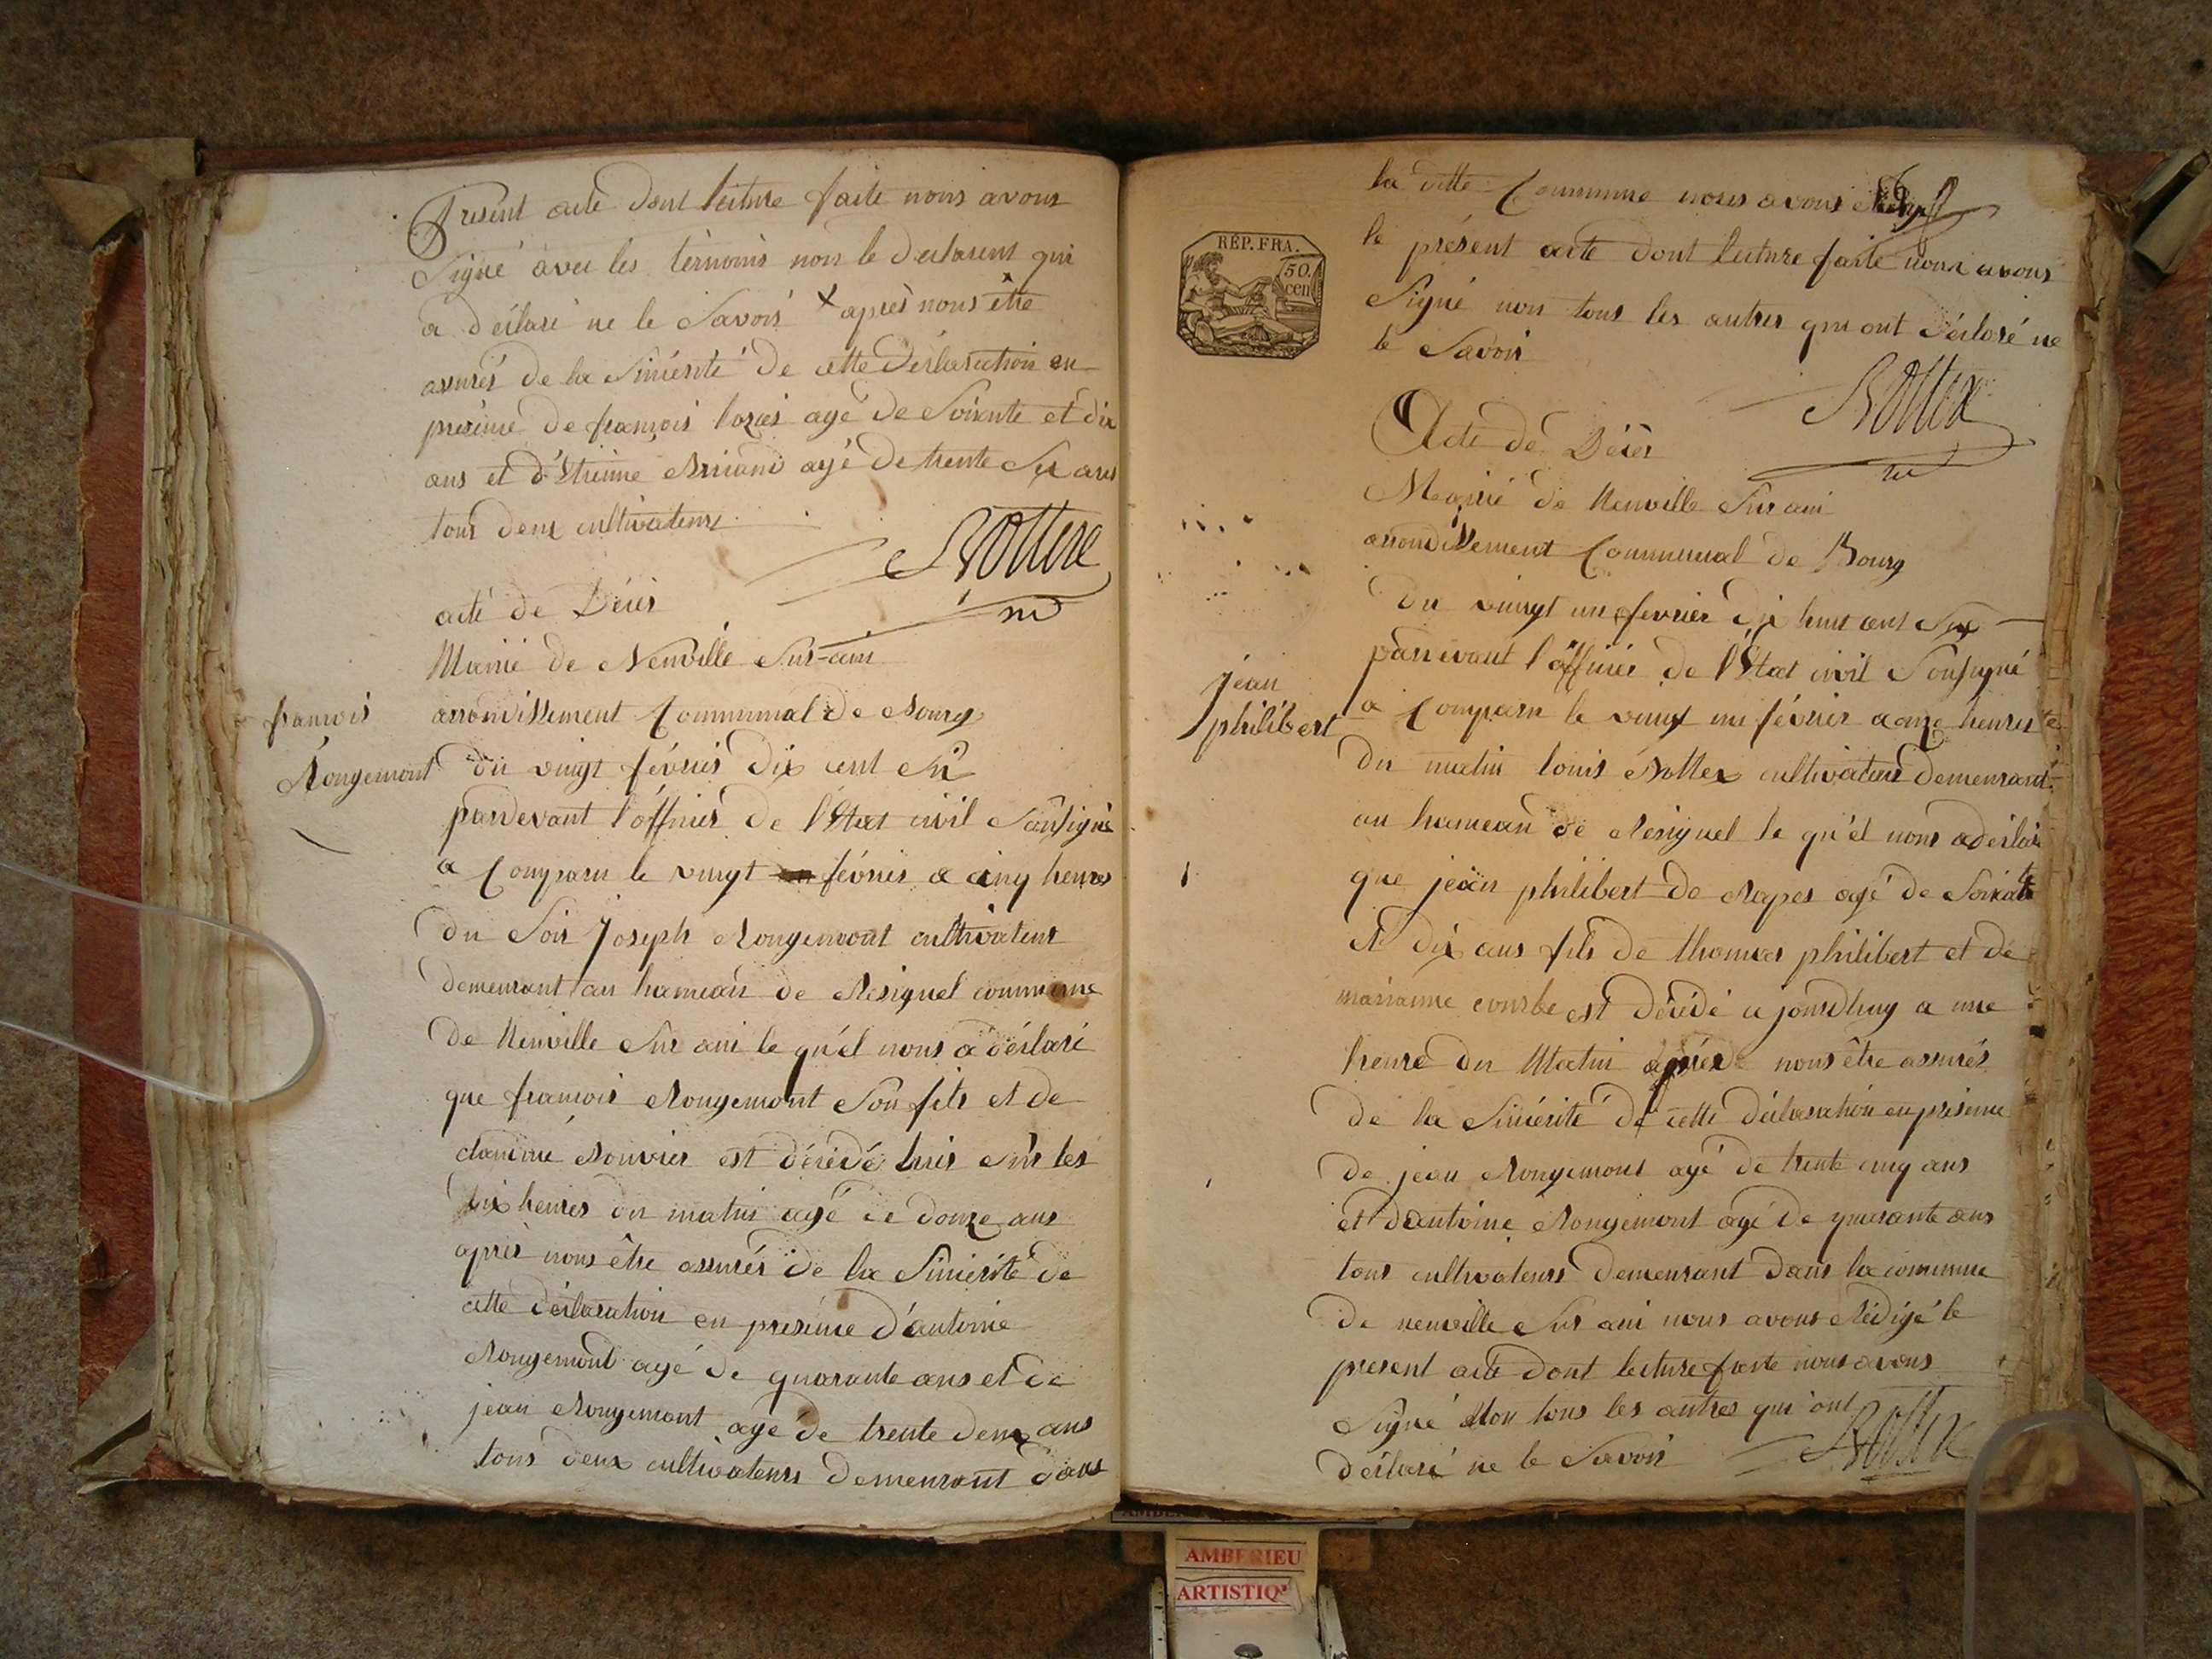 Présent acte dont lecture faite nous avons
Signé avec les témoins non le déclarent qui
a déclaré ne le Savoir + après nous être
assurés de la Sincérité de cette déclaration en
présence de françois agé de Soixante et dix
ans et d'Etienne agé de trente Six ans
tous deux cultivateurs
Rottier
m
acte de Décès
Mairie de Neuville Sur-ain
arrondissement Communal de Bourg
françois
Rougemont
du vingt février dix cent Six
pardevant l'officier de l'Etat civil Soussigné
a Comparu le vingt février a cinq heures
du Soir Joseph Rougemont cultivateur
demeurant au hameau de Resignel commune
de Neuville Sur ain le qu'el nous a déclaré
que françois Rougemont Son fils et de
claudine Bouvier est décédé hier Sur les
dix heures du matin agé de douze ans
après nous être assurés de la Sincérité de
cette déclaration en présence d'antoine
Rougemont agé de quarante ans et de
jean Rougemont agé de trente deux ans
tous deux cultivateurs demeurant dans
la ditte Commune nous avons Rédigé
le présent acte dont lecture faite nous avons
Signé non tous les autres qui ont déclaré ne
le Savoir
RÉP. FRA.
50
cen
Rottier
m
Acte de Décès
Mairie de Neuville Sur ain
arrondissement Communal de Bourg
du vingt un fevrier dix huit cent Six
jean
philibert
pardevant l'officier de l'Etat civil Soussigné
a Comparu le vingt un février a onze heures
du matin louis Rottier cultivateur demeurant
au hameau de Resignel le qu'el nous a déclaré
que jean philibert de Rapes agé de Soixante
et dix ans fils de thomas philibert et de
marianne combe est décédé a jourdhuy a une
heure du Matin après nous être assurés
de la Sincérité de cette déclaration en présence
de jean Rougemont agé de trente cinq ans
et dantoine Rougemont agé de quarante ans
tous cultivateurs demeurant dans la commune
de neuville Sur ain nous avons Rédigé le
present acte dont lecture faite nous avons
Signé Non tous les autres qui ont
déclaré ne le Savoir
Rottier
AMBERIEU
ARTISTIQ